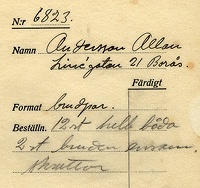 N:r 6823.
Namn Andersson Allan
Linégatan 21 Borås.
Färdigt
Format brudpar.
Beställn. 12 st helb båda
2 st bruden ensam.